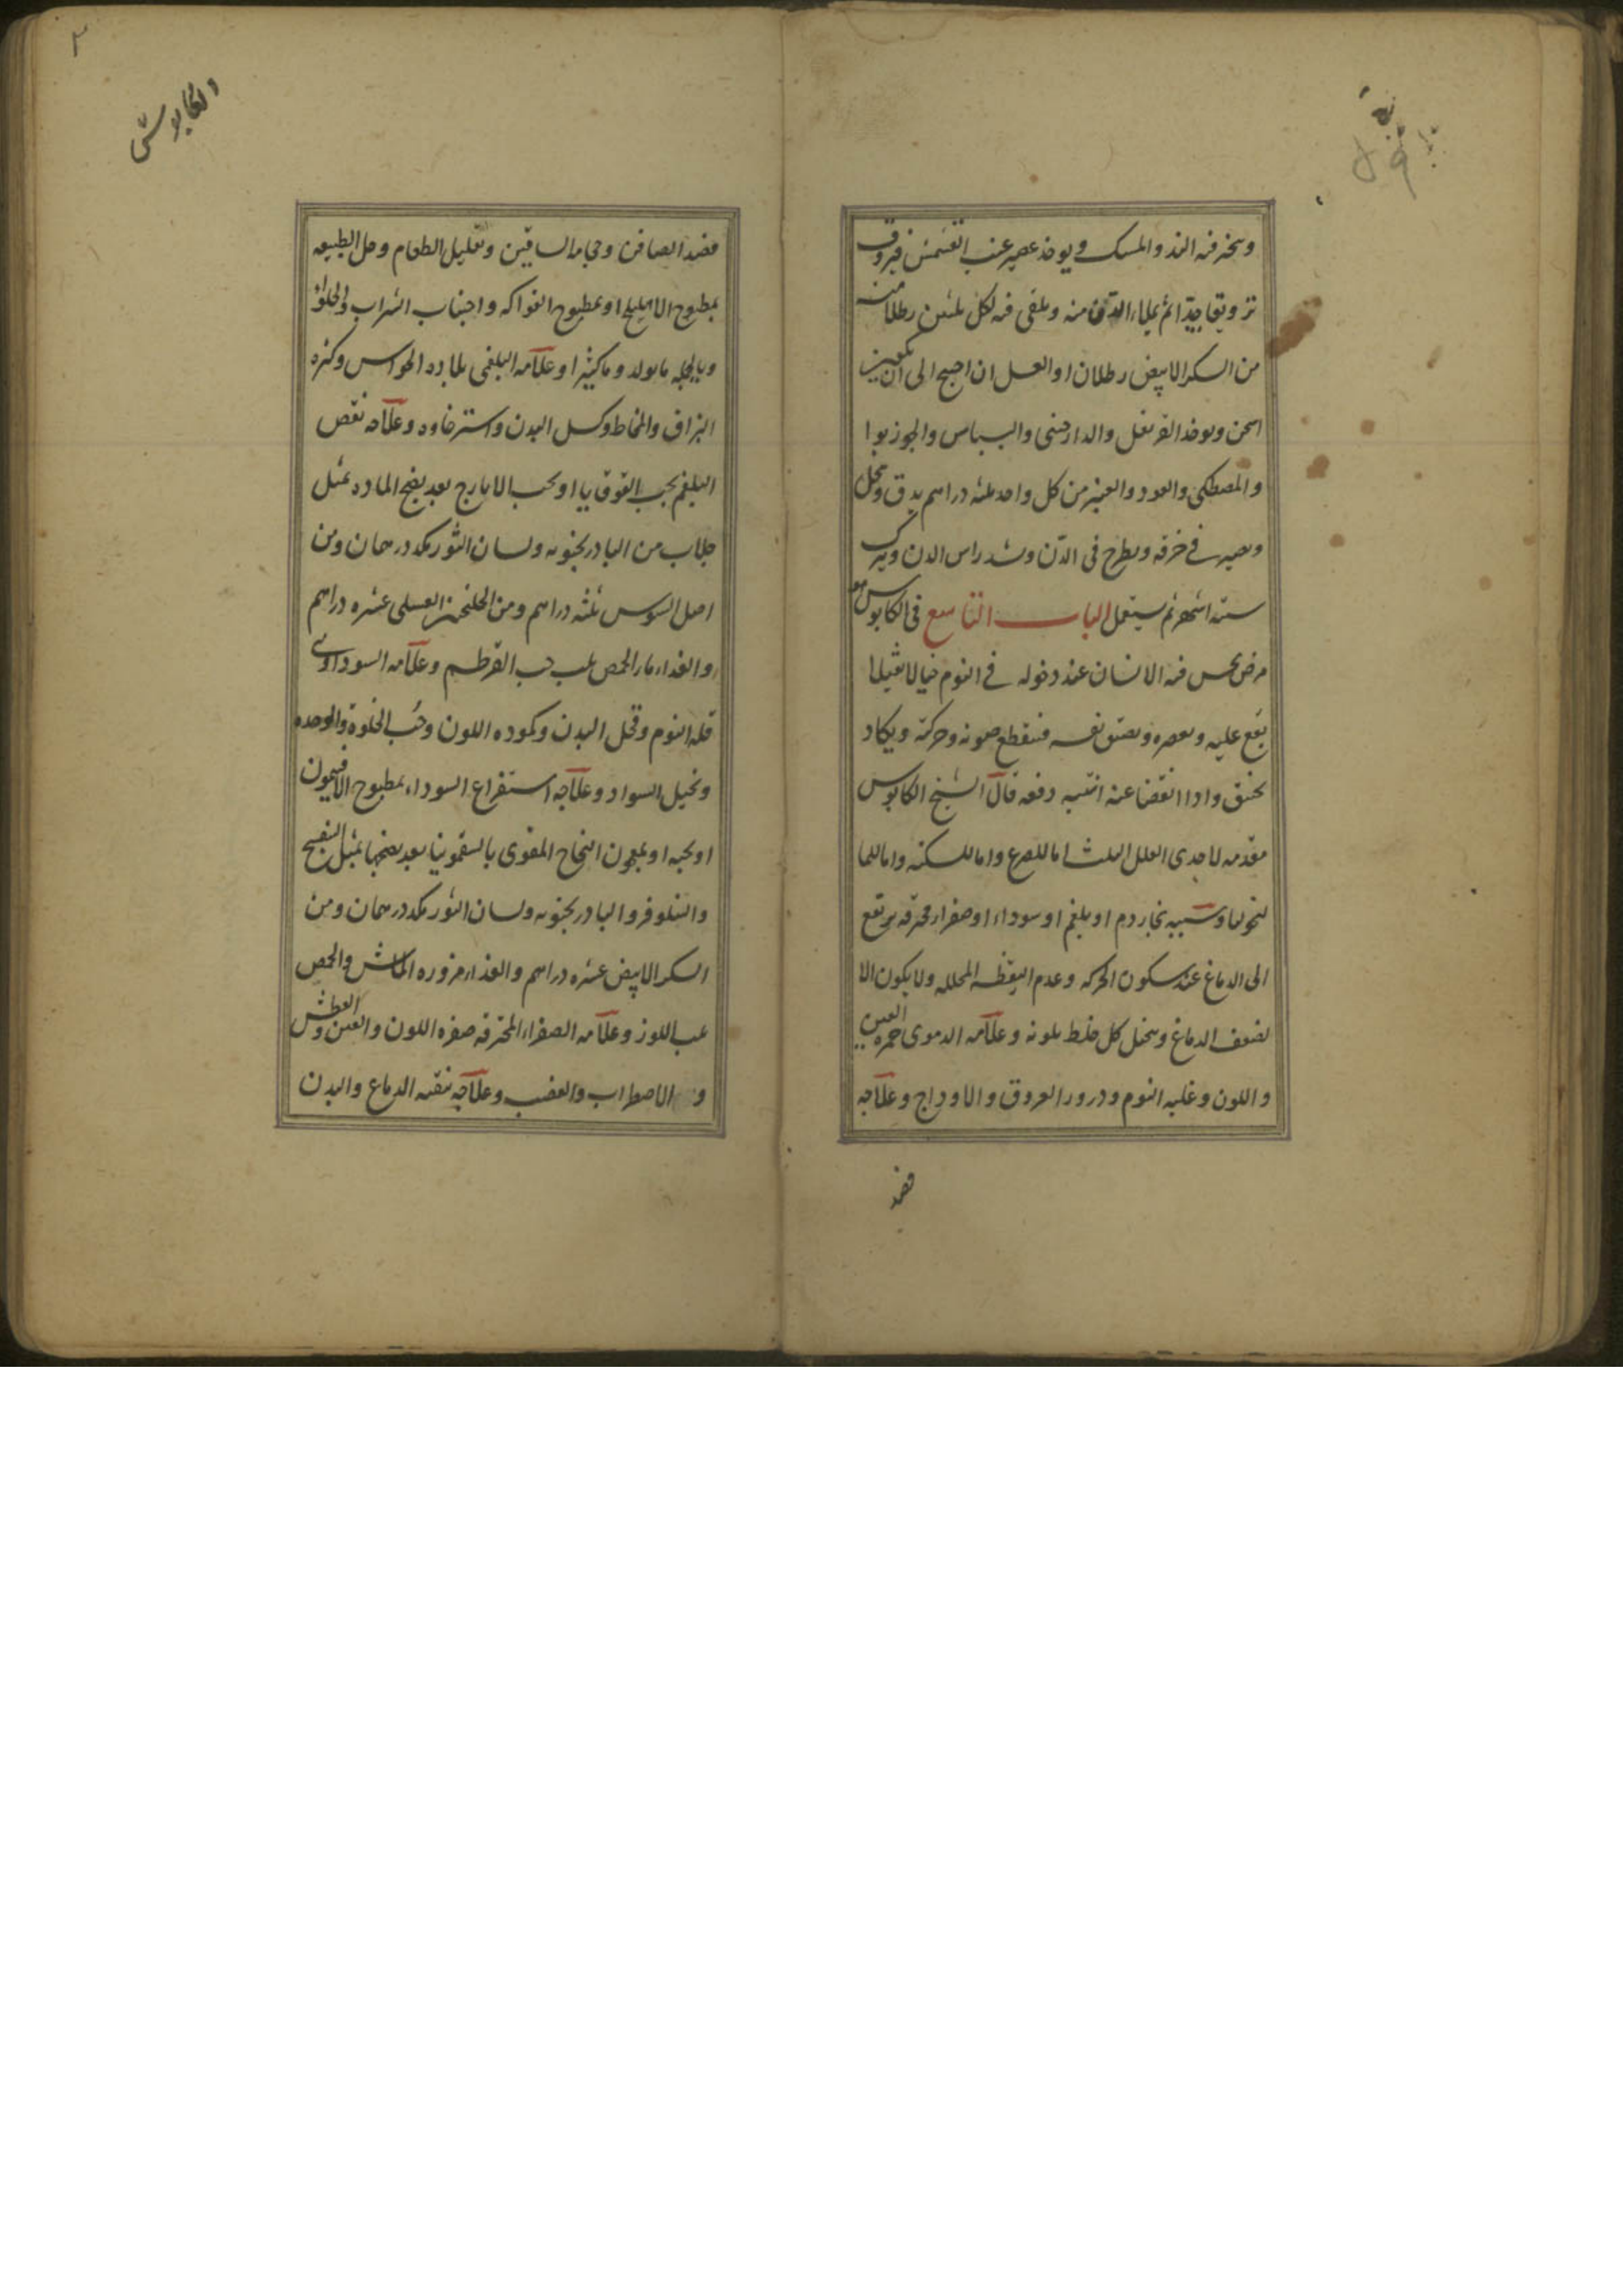 ويبخر فيه الند والمسك ويوخذ عصير عنب القشمش فيروق
ترويقا جيدا ثم يملاء الدن منه ويلقى فيه لكل ثلثين رطلا منه
من السكر الابيض رطلان او العسل ان احتيج الى ان يكون
اسخن ويوخذ القرنفل والدارصنى والبسباس والجوزبوا
والمصطكى والعود والعنبر من كل واحد ثلثه دراهم يدق وينخل
ويصير في خرقه ويطرح فى الدن وشد راس الدن ويترك
سته اشهر ثم يستعمل الباب التاسع فى الكابوس هو
مرض يحس فيه الانسان عند دخوله في النوم خيالا ثقيلا
يقع عليه ويعصره ويضيق نفسه فينقطع صوته وحركته ويكاد
يختنق واذا انقضا عنه انتبه دفعه قال الشيخ الكابوس
مقدمه لاحدى العلل الثلث اما للصرع واما للسكته واما للما
لنخوليا وسببه بخار دم او بلغم او سوداء او صفراء محرقه يرتفع
الى الدماغ عند سكون الحركه وعدم اليقظه المحلله ولا يكون الا
لضعف الدماغ ويتخيل كل خلط بلونه وعلامه الدموى حمره العين
واللون وغلبه النوم ودرور العروق والاوداج وعلاجه
فصد
والكابوس
فصد الصافن وحجامه الساقين وتقليل الطعام وحل الطبيعه
بمطبوخ الاهليلج او بمطبوخ الفواكه واجتناب الشراب والحلواء
وبالجمله ما يولد دما كثيرا وعلامه البلغمى بلاده الحواس وكثره
البزاق والمخاط وكسل البدن واسترخاوه وعلاجه نقص
البلغم بحب القوقايا او بحب الايارج بعد نضج الماده بمثل
جلاب من البادرنجبويه ولسان الثور مكد درهمان ومن
اصل السوس ثلثه دراهم ومن الجلنجبين العسلى عشره دراهم
والغداء ماء الحمص بلب حب القرطم وعلامه السوداوى
قله النوم وقحل البدن وكموده اللون وحب الخلوة والوحده
وتخيل السواد وعلاجه استفراغ السوداء بمطبوخ الافتيمون
او بحبه او بمعجون النجاح المقوى بالسقمونيا بعد نضجها بمثل البنفسج
والنيلوفر والبادرنجبويه ولسان الثور مكد درهمان ومن
السكر الابيض عشره دراهم والغذاء مزوره الماش والحمص
بلب اللوز وعلامه الصفراء المحترقه صفره اللون والعين والعطش
و الاضطراب والغضب وعلاجه تنقيه الدماغ والبدن